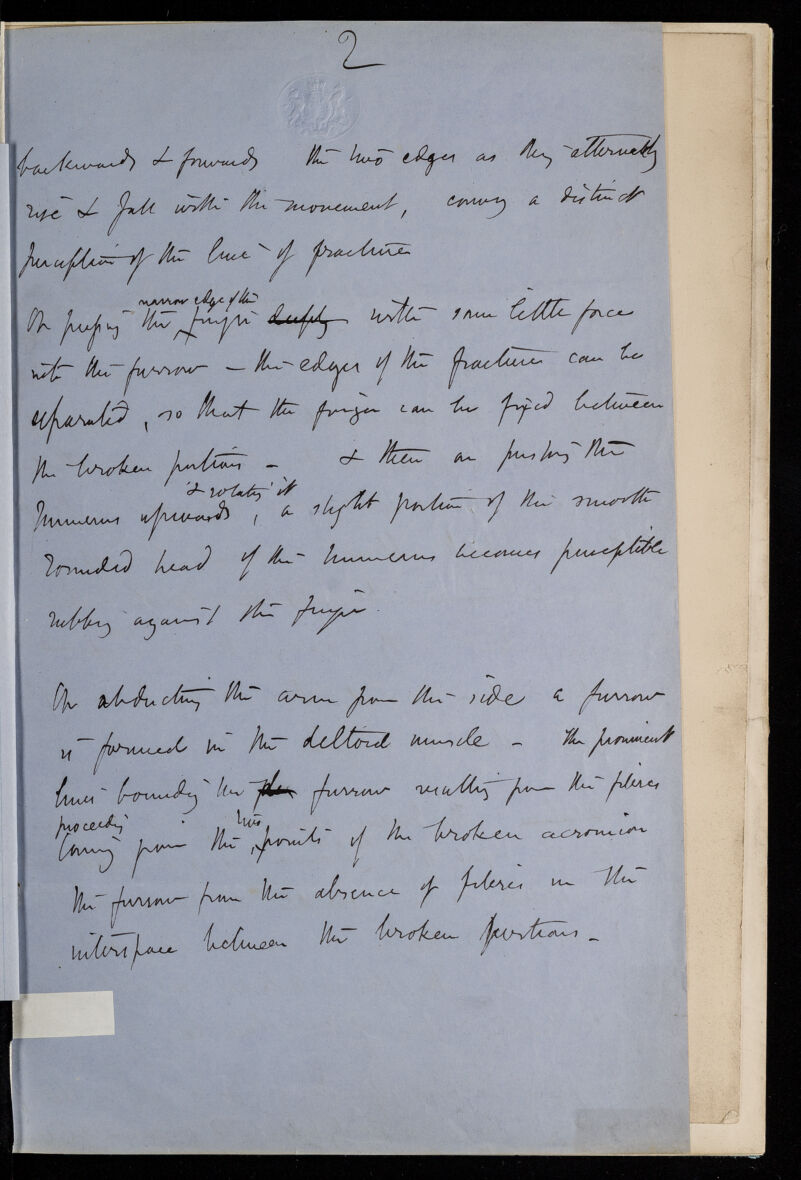 2
backwards & forwards the two edges as they alternately
rise & fall with the movement, convey a distinct
perception of the line of fracture
On pressing the narrow edge of the finger deeply with some little force
into the furrow – the edges of the fracture can be
separated, so that the finger can be fixed between
the broken portions – & then on pushing the
humerus upwards & rotating it, a slight portion of the smooth
rounded head of the humerus becomes perceptible
rubbing against the finger.
On abducting the arm from the side a furrow
is formed in the deltoid muscle – the prominent
lines bounding the furrow resulting from the fibres
proceeding
coming from the two points of the broken acromion
the furrow from the absence of fibres in the
interspace between the broken portions –